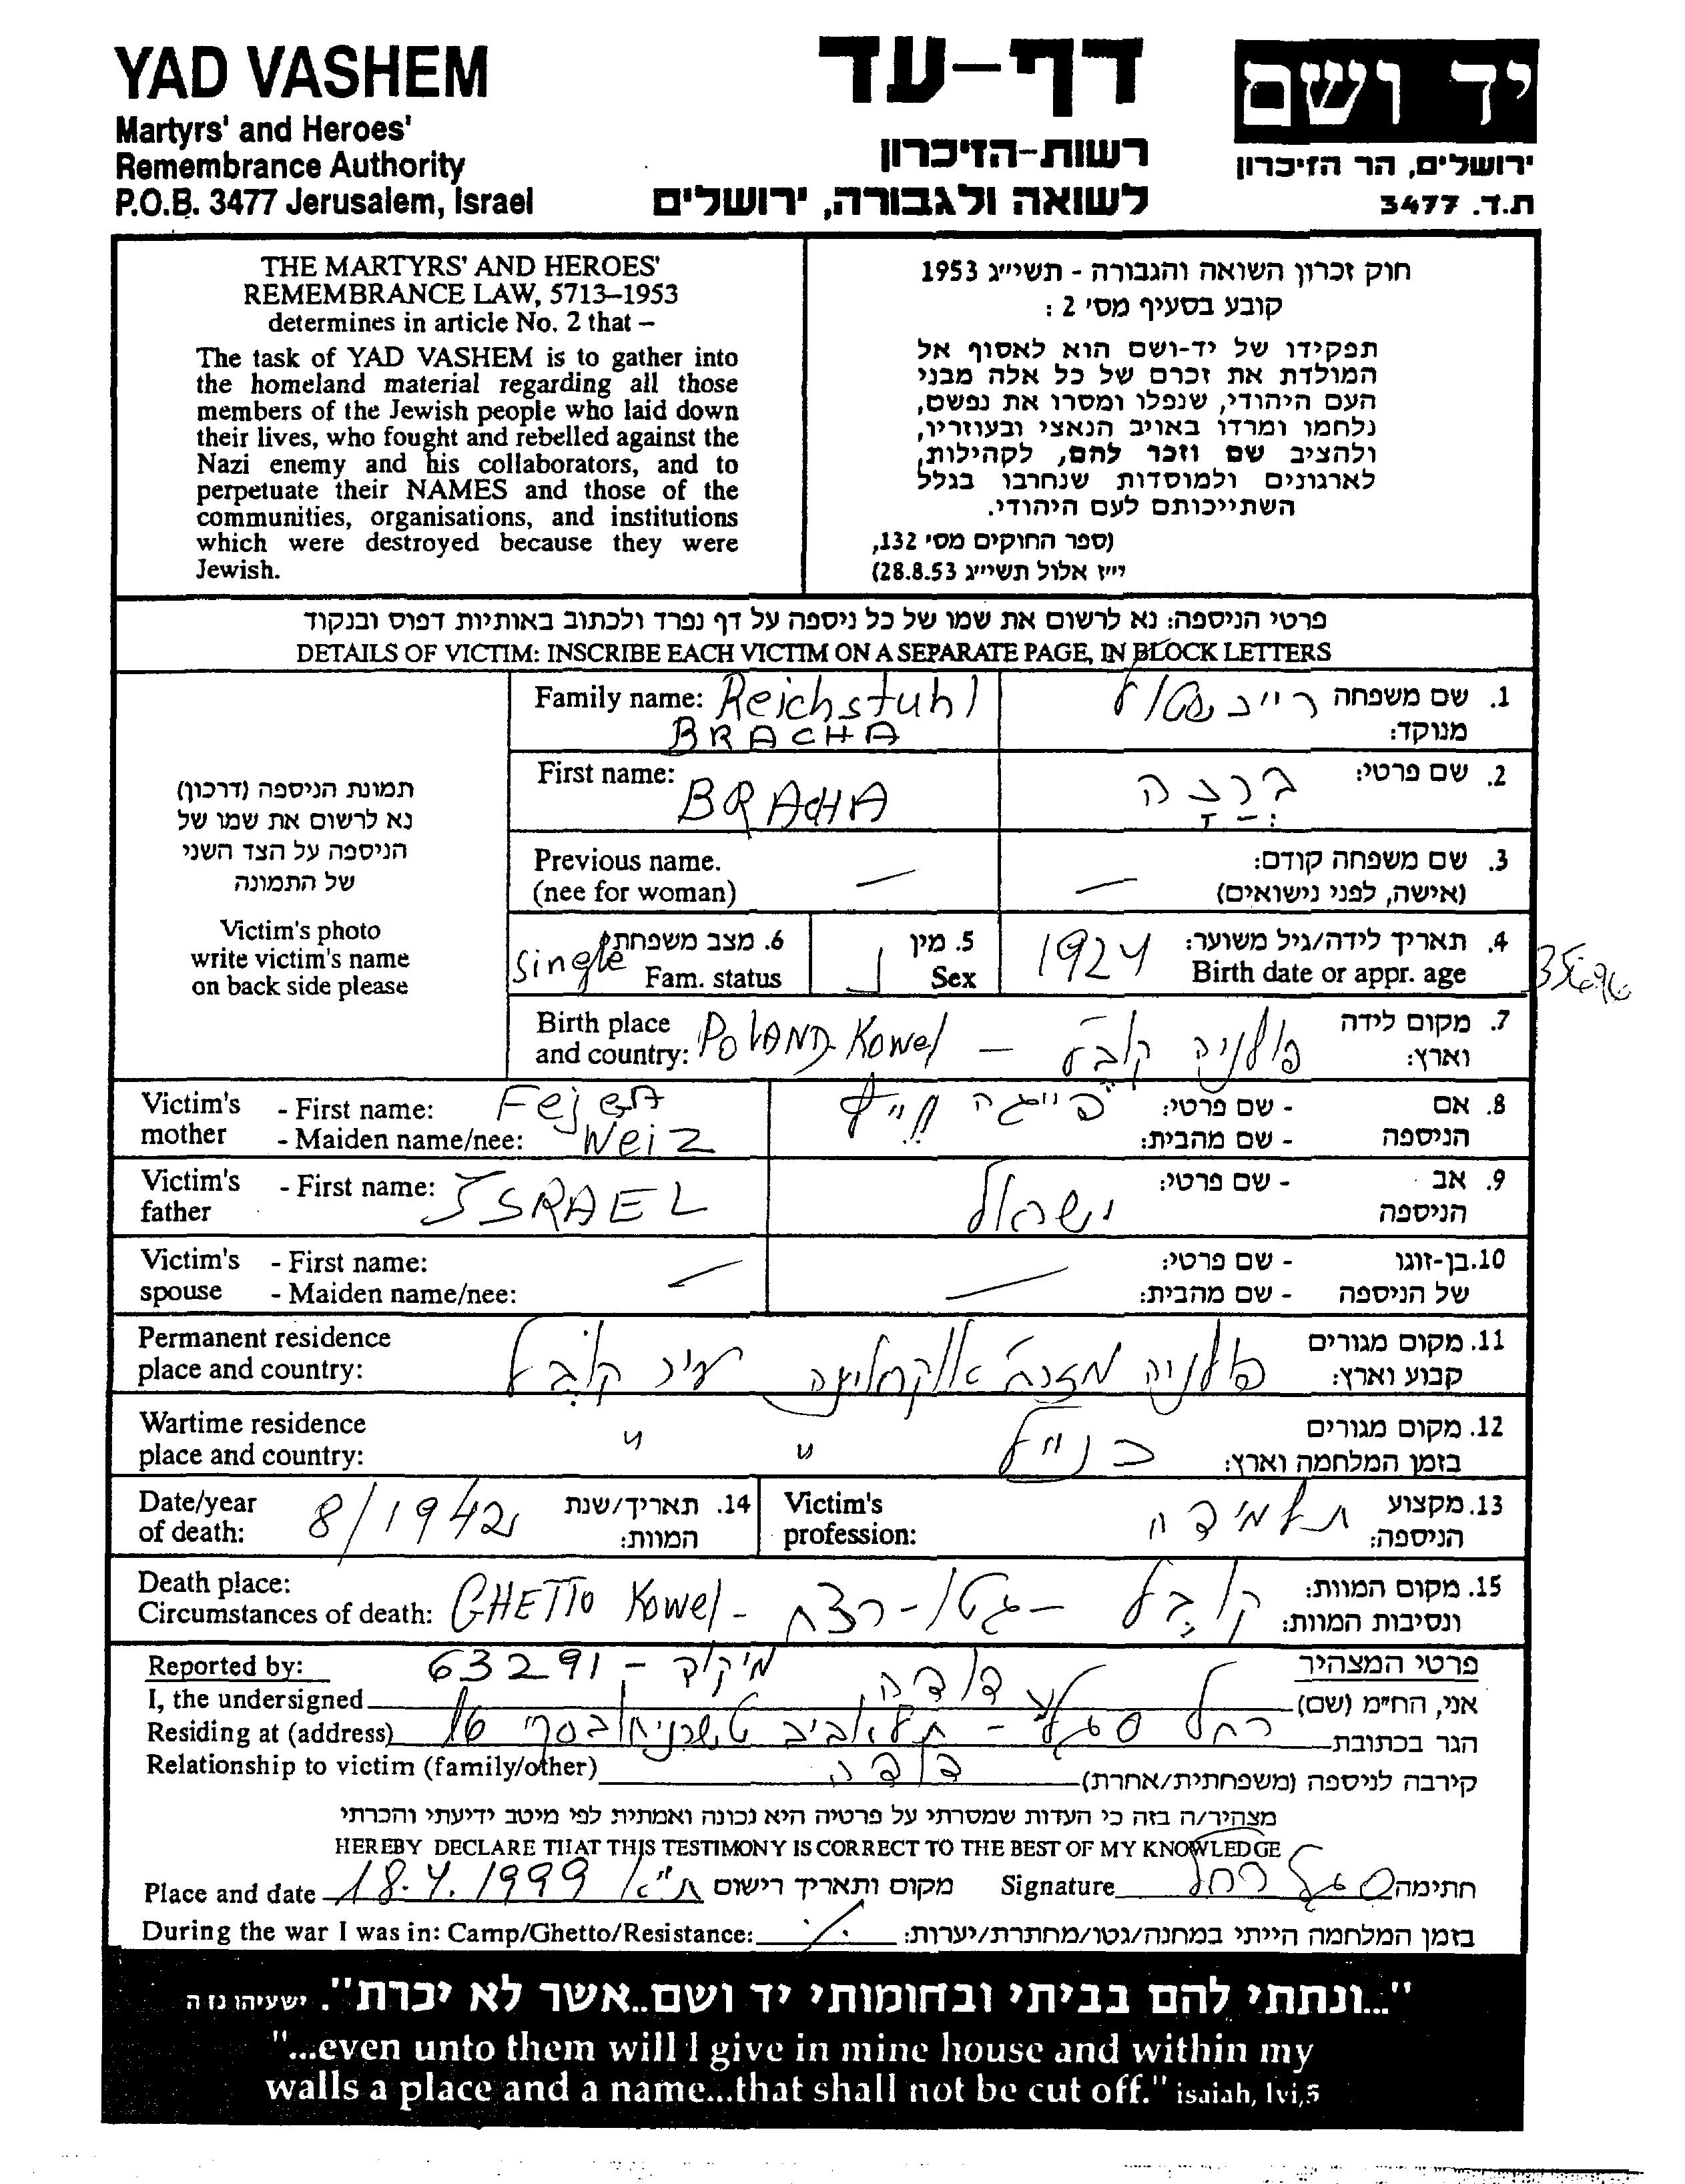 YAD VASHEM
Martyrs' and Heroes'
Remembrance Authority
P.O.B. 3477 Jerusalem, Israel
דף-עד
רשות-הזיכרון
לשואה ולגבורה, ירושלים
יד ושם
ירושלים, הר הזיכרון
ת.ד. 3477
THE MARTYRS' AND HEROES'
REMEMBRANCE LAW, 5713–1953
determines in article No. 2 that –
The task of YAD VASHEM is to gather into
the homeland material regarding all those
members of the Jewish people who laid down
their lives, who fought and rebelled against the
Nazi enemy and his collaborators, and to
perpetuate their NAMES and those of the
communities, organisations, and institutions
which were destroyed because they were
Jewish.
חוק זכרון השואה והגבורה - תשי״ג 1953
קובע בסעיף מס' 2 :
תפקידו של יד-ושם הוא לאסוף אל
המולדת את זכרם של כל אלה מבני
העם היהודי, שנפלו ומסרו את נפשם,
נלחמו ומרדו באויב הנאצי ובעוזריו,
ולהציב שם וזכר להם, לקהילות,
לארגונים ולמוסדות שנחרבו בגלל
השתייכותם לעם היהודי.
(ספר החוקים מס' 132,
י״ז אלול תשי״ג 28.8.53)
פרטי הניספה: נא לרשום את שמו של כל ניספה על דף נפרד ולכתוב באותיות דפוס ובנקוד
DETAILS OF VICTIM: INSCRIBE EACH VICTIM ON A SEPARATE PAGE, IN BLOCK LETTERS
תמונת הניספה (דרכון)
נא לרשום את שמו של
הניספה על הצד השני
של התמונה
Victim's photo
write victim's name
on back side please
Family name: Reichstuhl
BRACHA
1. שם משפחה
מנוקד:
First name: BRACHA
2. שם פרטי: בְּרַכָה
Previous name.
(nee for woman) –
3. שם משפחה קודם:
(אישה, לפני נישואים) –
6. מצב משפחתי
single Fam. status
5. מין
Sex
4. תאריך לידה/גיל משוער: 1924
Birth date or appr. age
35696
Birth place
and country: POLAND Kowel –
7. מקום לידה
וארץ: פולניה קובל
Victim's - First name: Fejga
mother - Maiden name/nee: Weiz
8. אם - שם פרטי: פייגה
הניספה - שם מהבית: וייץ
Victim's - First name: ISRAEL
father
9. אב - שם פרטי: ישראל
הניספה
Victim's - First name:
spouse - Maiden name/nee: –
10. בן-זוגו - שם פרטי:
של הניספה - שם מהבית: –
Permanent residence
place and country:
11. מקום מגורים
קבוע וארץ: פולניה מזרח אוקראינה עיר קובל
Wartime residence
place and country:
12. מקום מגורים
בזמן המלחמה וארץ: כנ״ל " "
Date/year
of death: 8/1942
14. תאריך/שנת
המוות:
Victim's
profession:
13. מקצוע
הניספה: תלמידה
Death place:
Circumstances of death: GHETTO Kowel -
15. מקום המוות:
ונסיבות המוות: קובל - גטו - רצח
Reported by: 63291 - מיקוד
פרטי המצהיר
I, the undersigned
אני, הח״מ (שם) דודה
Residing at (address)
הגר בכתובת רחל סגל - תל אביב 16
Relationship to victim (family/other)
קירבה לניספה (משפחתית/אחרת) דודה
מצהיר/ה בזה כי העדות שמסרתי על פרטיה היא נכונה ואמתית לפי מיטב ידיעתי והכרתי
HEREBY DECLARE THAT THIS TESTIMONY IS CORRECT TO THE BEST OF MY KNOWLEDGE
Place and date 18.4.1999 ת״א מקום ותאריך רישום Signature סגל רחל חתימה
During the war I was in: Camp/Ghetto/Resistance: בזמן המלחמה הייתי במחנה/גטו/מחתרת/יערות:
"...ונתתי להם בביתי ובחומותי יד ושם..אשר לא יכרת". ישעיהו נו ה
"...even unto them will I give in mine house and within my
walls a place and a name...that shall not be cut off." isaiah, lvi,5